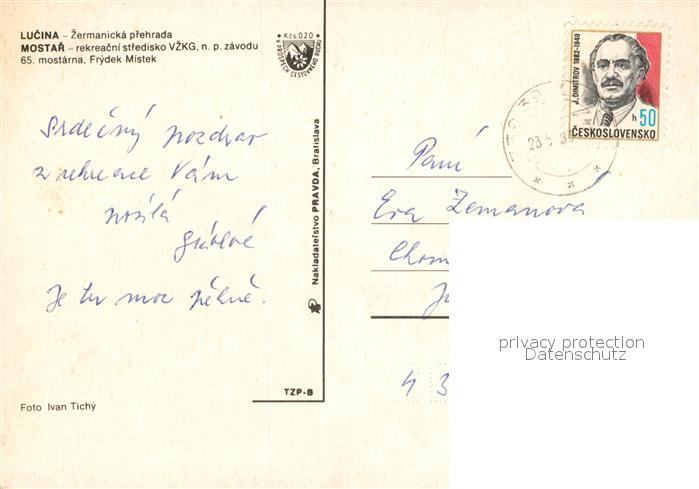 LUČINA – Žermanická přehrada
MOSTAŘ – rekreační středisko VŽKG, n. p. závodu
65. mostárna, Frýdek Místek
Kčs 0.20
V PROSPĚCH CESTOVNÉHO RUCHU
J. DIMITROV 1882-1949
h 50
ČESKOSLOVENSKO
23 5
Srdečný pozdrav
z rekreace Vám
posílá
Je tu moc pěkně.
Paní
Eva Zemanová
Chom
4 3
Nakladatelství PRAVDA, Bratislava
TZP-B
Foto Ivan Tichý
privacy protection
Datenschutz